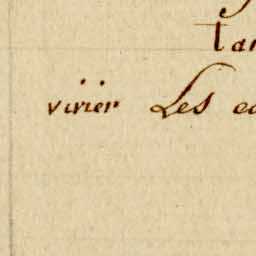 tan
vivier Les ea